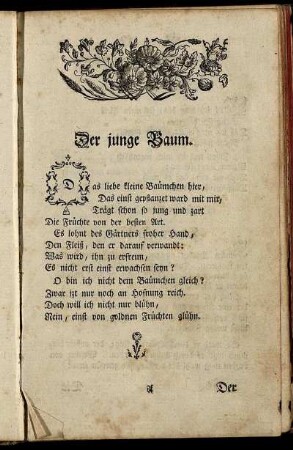 Der junge Baum.
Das liebe kleine Baümchen hier,
Das einst gepflanzet ward mit mir,
Trägt schon so jung und zart
Die Früchte von der besten Art.
Es lohnt des Gärtners froher Hand,
Den Fleiß, den er darauf verwandt:
Was wird, ihn zu erfreun,
Es nicht erst einst erwachsen seyn?
O bin ich nicht dem Baümchen gleich?
Zwar izt nur noch an Hofnung reich.
Doch will ich nicht nur blühn,
Nein, einst von goldnen Früchten glühn.
A
Der